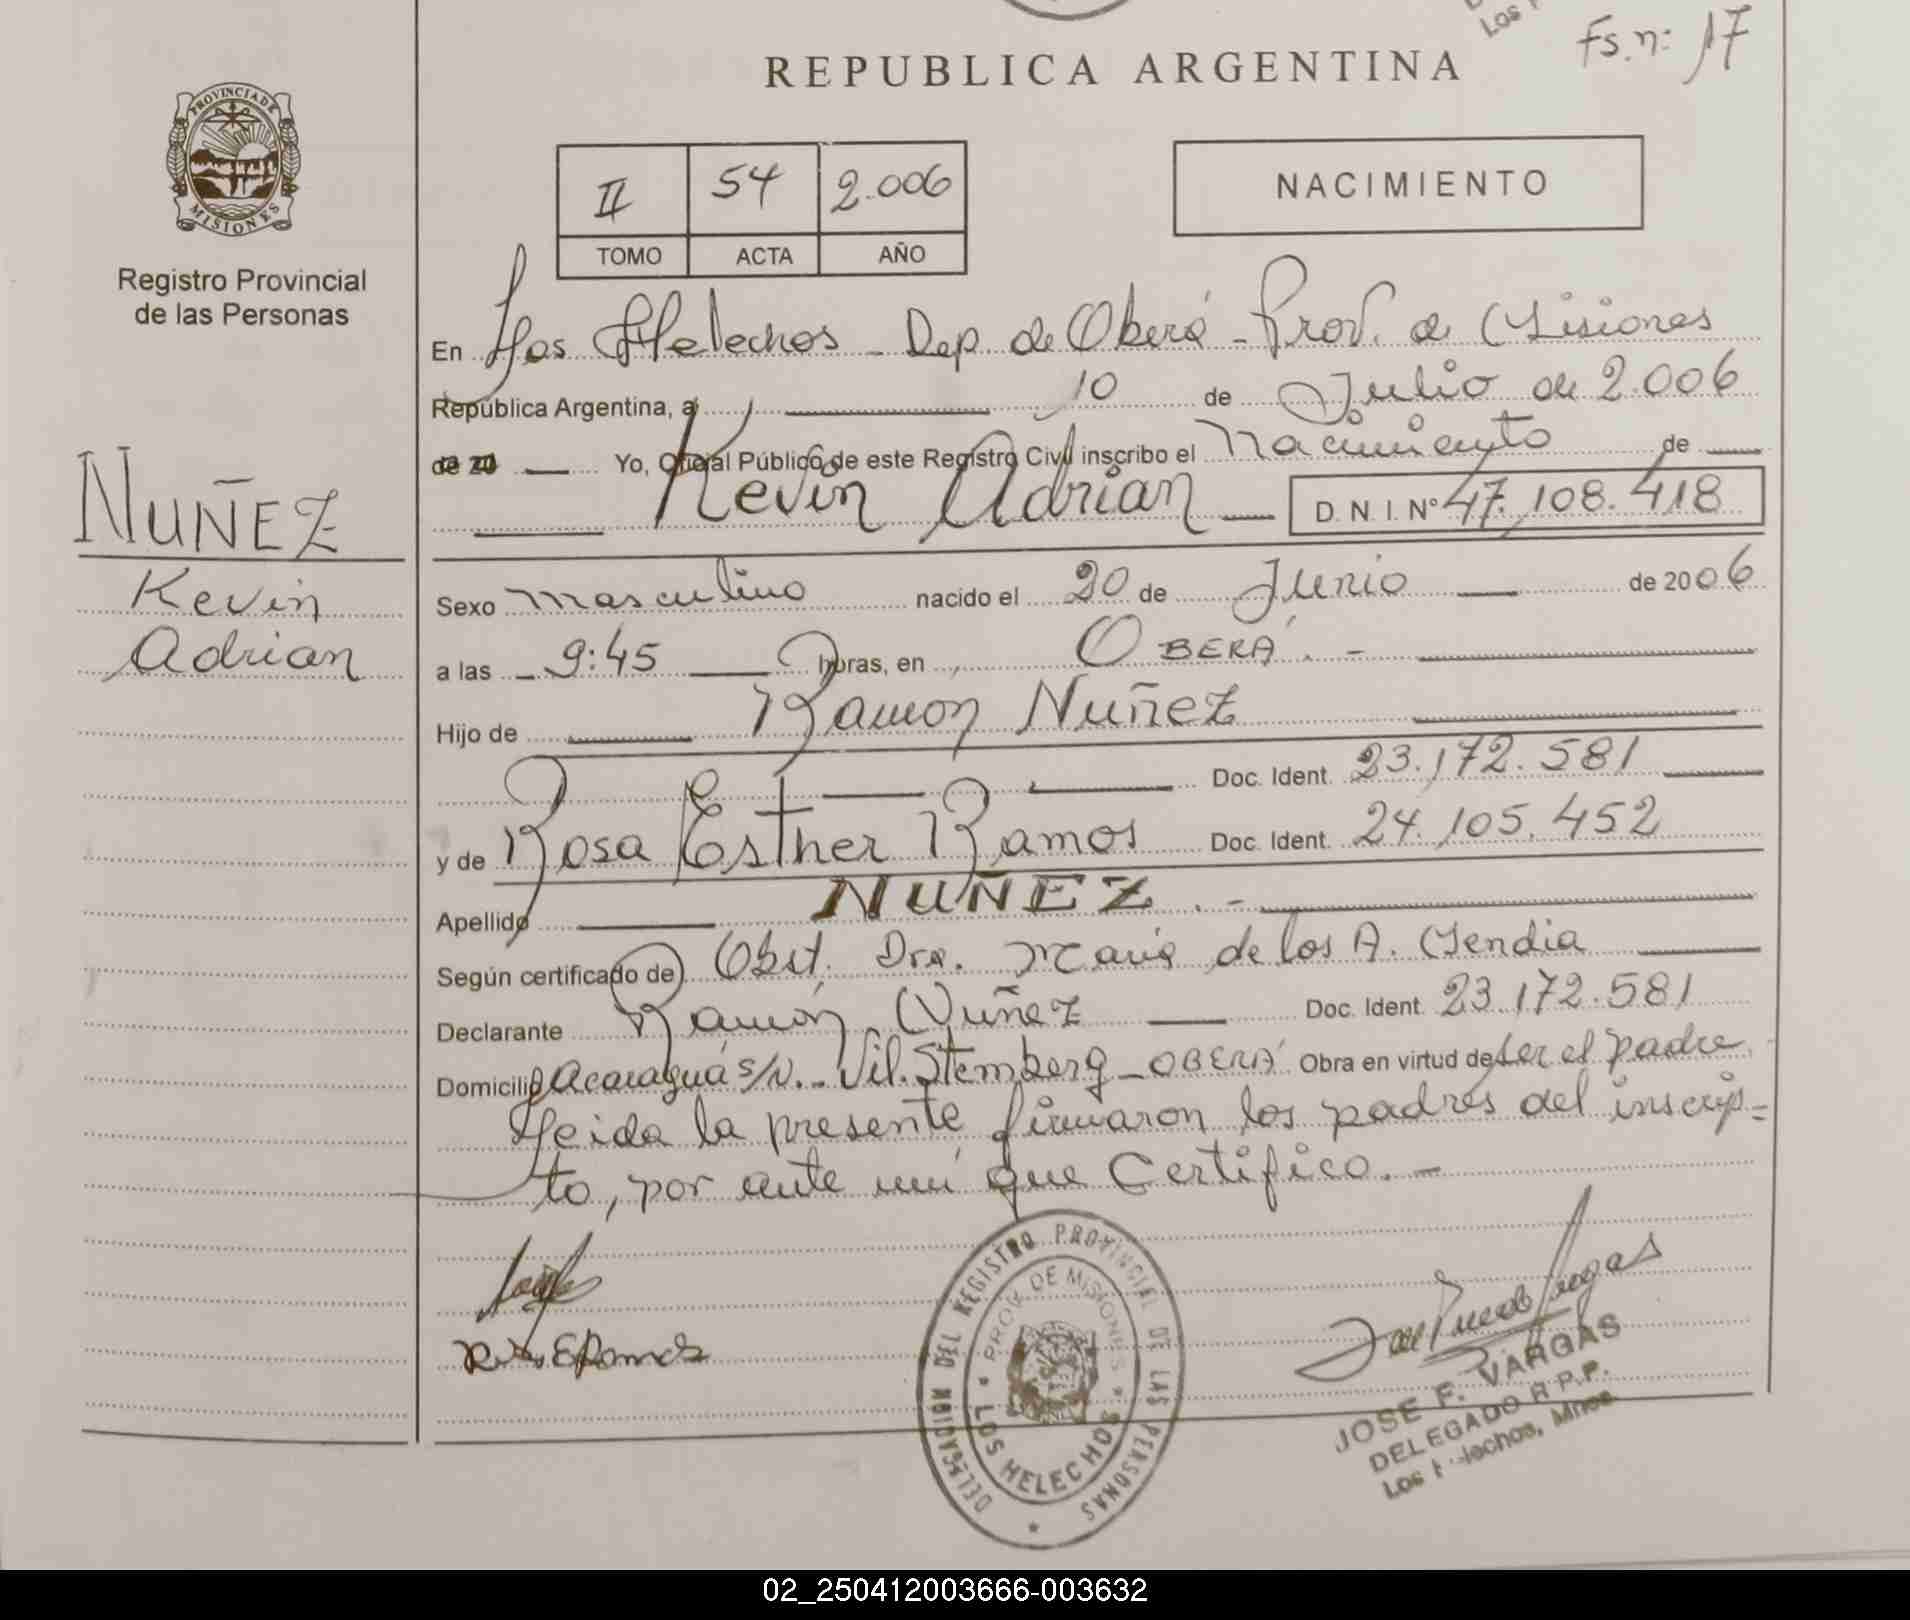 Fs. n: 17
REPUBLICA ARGENTINA
PROVINCIA DE
MISIONES
Registro Provincial
de las Personas
II 54 2.006
TOMO ACTA AÑO
NACIMIENTO
NUÑEZ
Kevin
Adrian
En Los Helechos - Dep. de Oberá - Prov. de Misiones
República Argentina, a 10 de Julio de 2.006
de 20 Yo, Oficial Público de este Registro Civil inscribo el Nacimiento de
Kevin Adrian D.N.I. Nº 47.108.418
Sexo masculino nacido el 20 de Junio de 2006
a las 9:45 horas, en OBERÁ.-
Hijo de Ramon Nuñez
Doc. Ident. 23.172.581
y de Rosa Esther Ramos Doc. Ident. 24.105.452
Apellido NUÑEZ.-
Según certificado de Obst. Dra. Maria de los A. Mendia
Declarante Ramón Nuñez Doc. Ident. 23.172.581
Domicilio Acaraguá s/N. - Vil. Stemberg - OBERÁ Obra en virtud de ser el padre
Leida la presente firmaron los padres del inscrip=
to, por ante mi que Certifico.-
DELEGACION DEL REGISTRO PROVINCIAL DE LAS PERSONAS
PROV. DE MISIONES
LOS HELECHOS
JOSE F. VARGAS
DELEGADO R.P.P.
Los Helechos, Mnes.
02_250412003666-003632